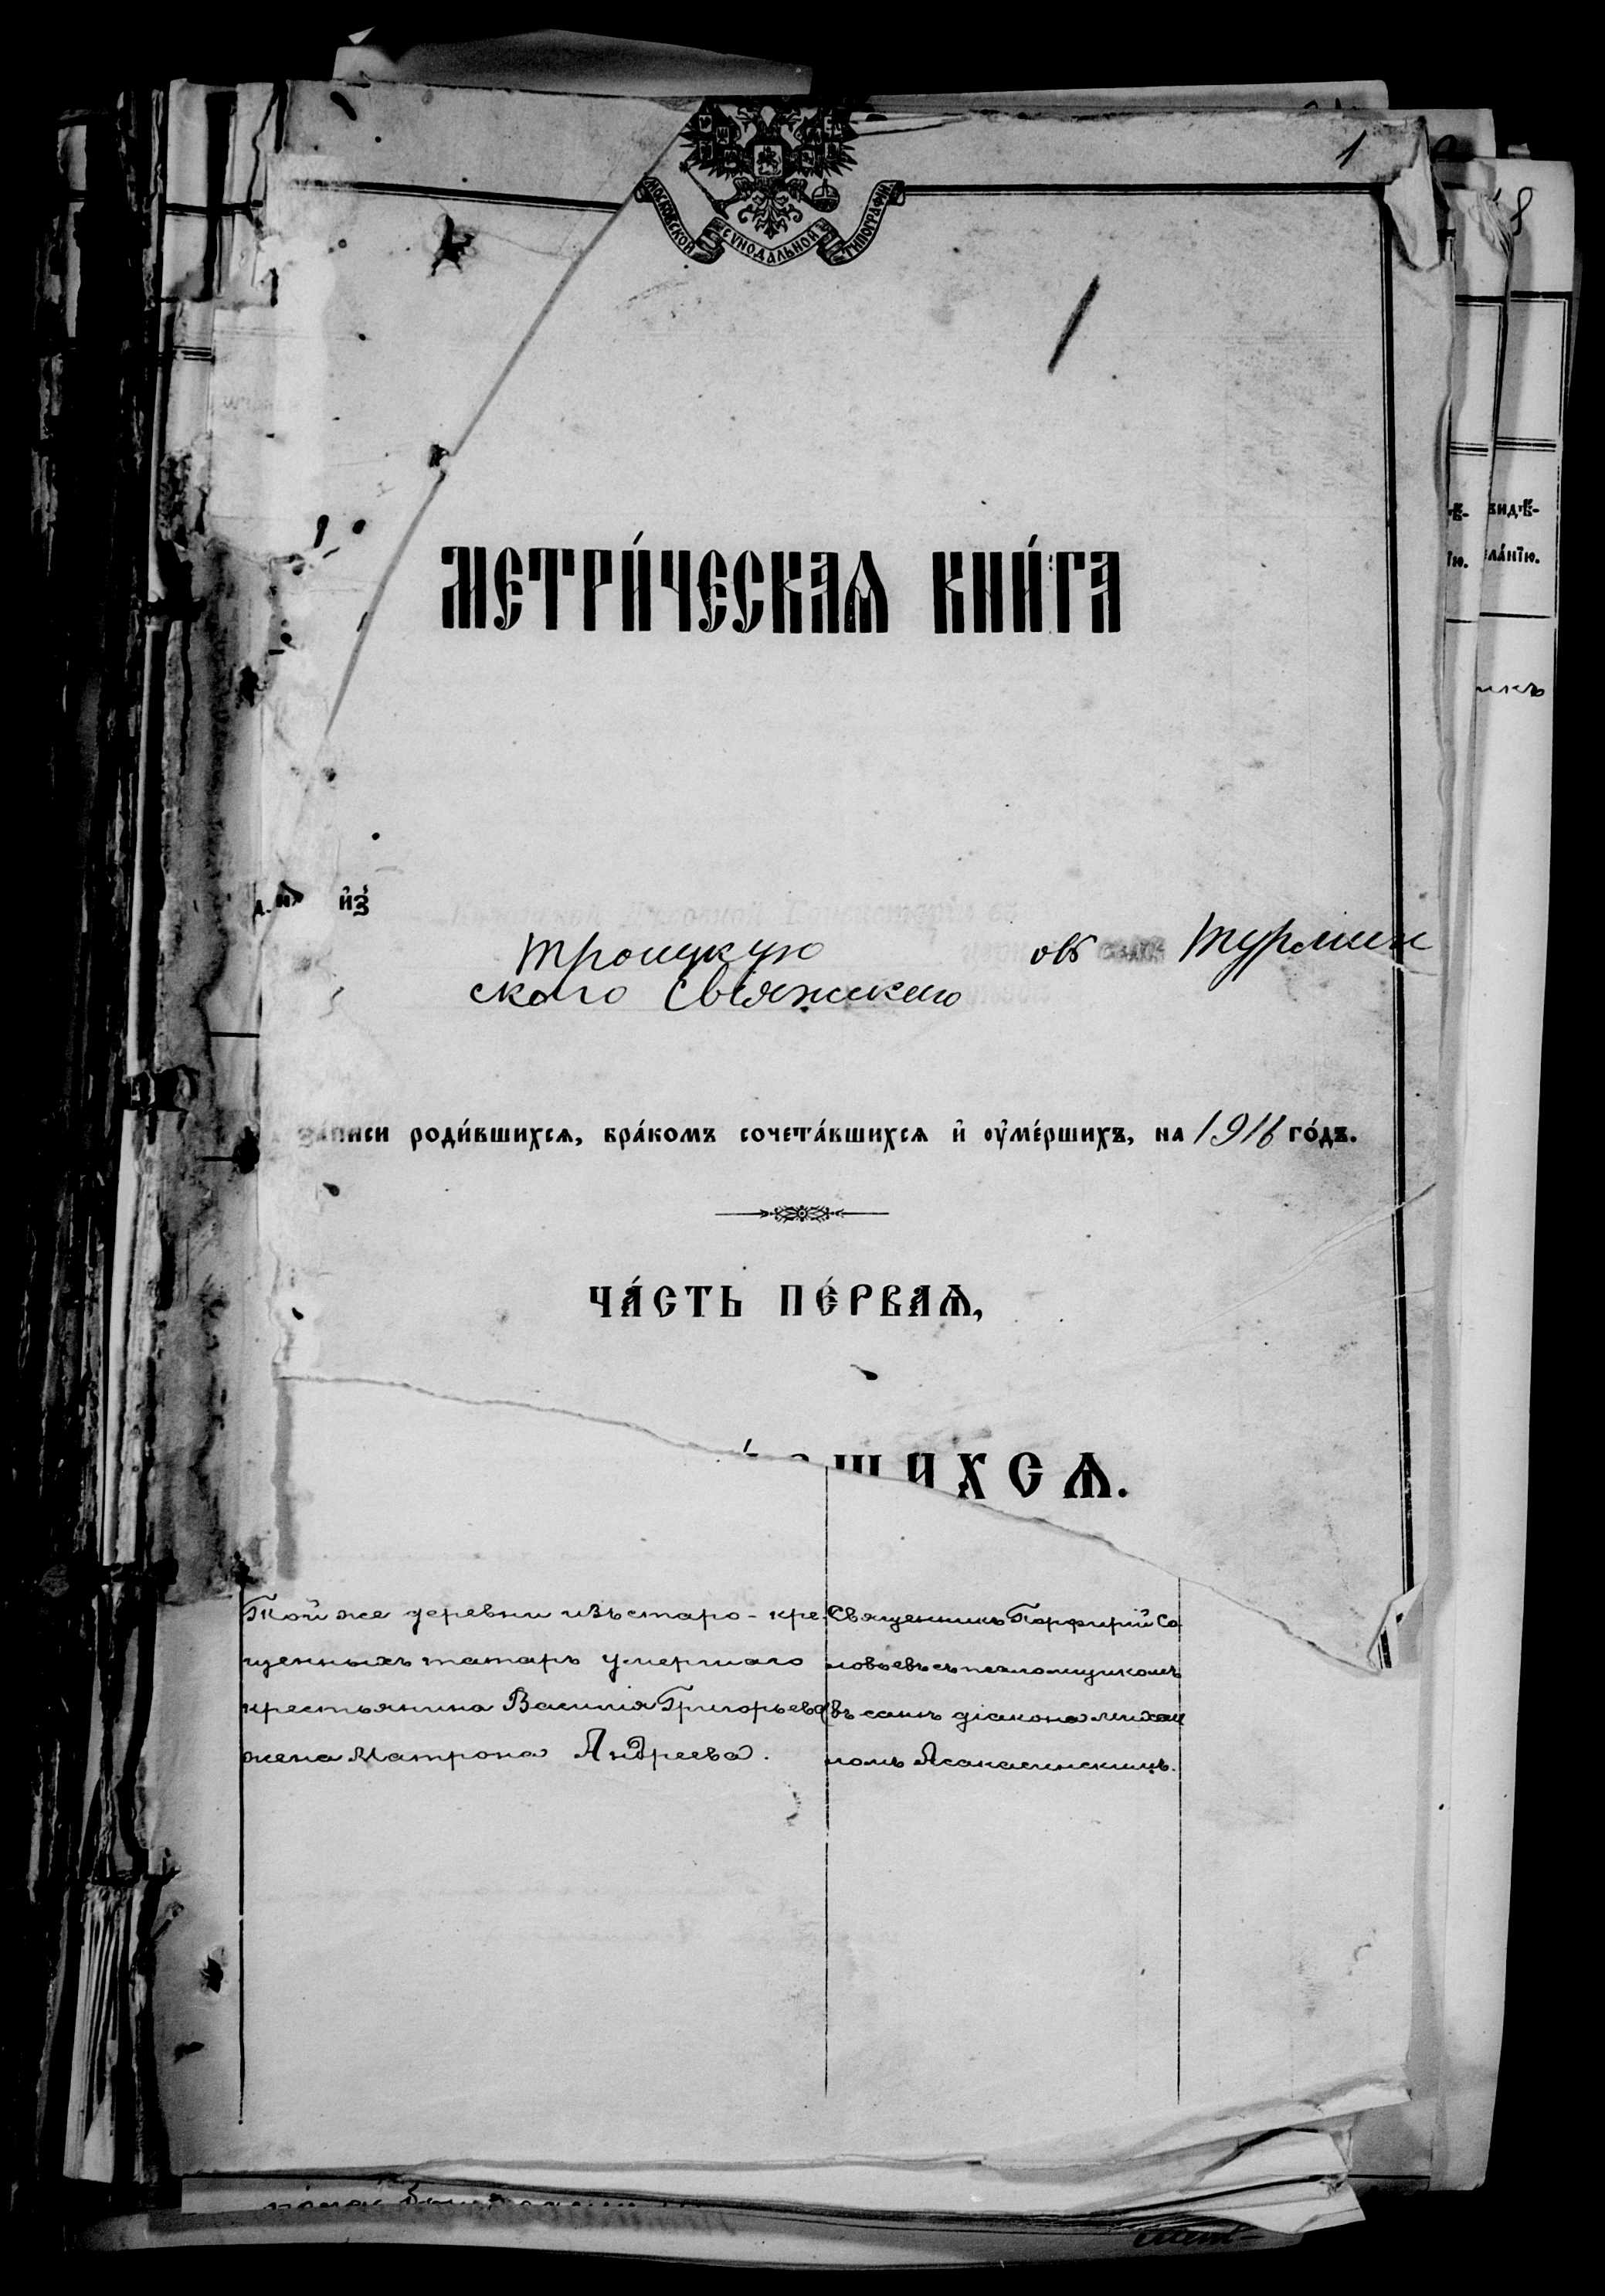 1
МОСКОВСКОЙ СѴНОДАЛЬНОЙ ТИПОГРАФІИ
МЕТРИ́ЧЕСКАѦ КНИ́ГА
и҆з̾
Троицкую ов Турмин
ского Свіяжскаго
записи роди́вшихсѧ, бра́комъ сочета́вшихсѧ и҆ оу҆ме́ршихъ, на 1916 го́дъ.
ЧА́СТЬ ПЕ́РВАѦ,
ШИХСѦ.
Той же деревни изъ старо-кре-
щенныхъ татаръ умершаго
крестьянина Василія Григорьева
жена Матрона Андреева.
Священникъ Порфирій Со
ловьевъ съ псаломщикомъ
въ санѣ діакона Михаи
ломъ
видѣ-
ла́нїю.